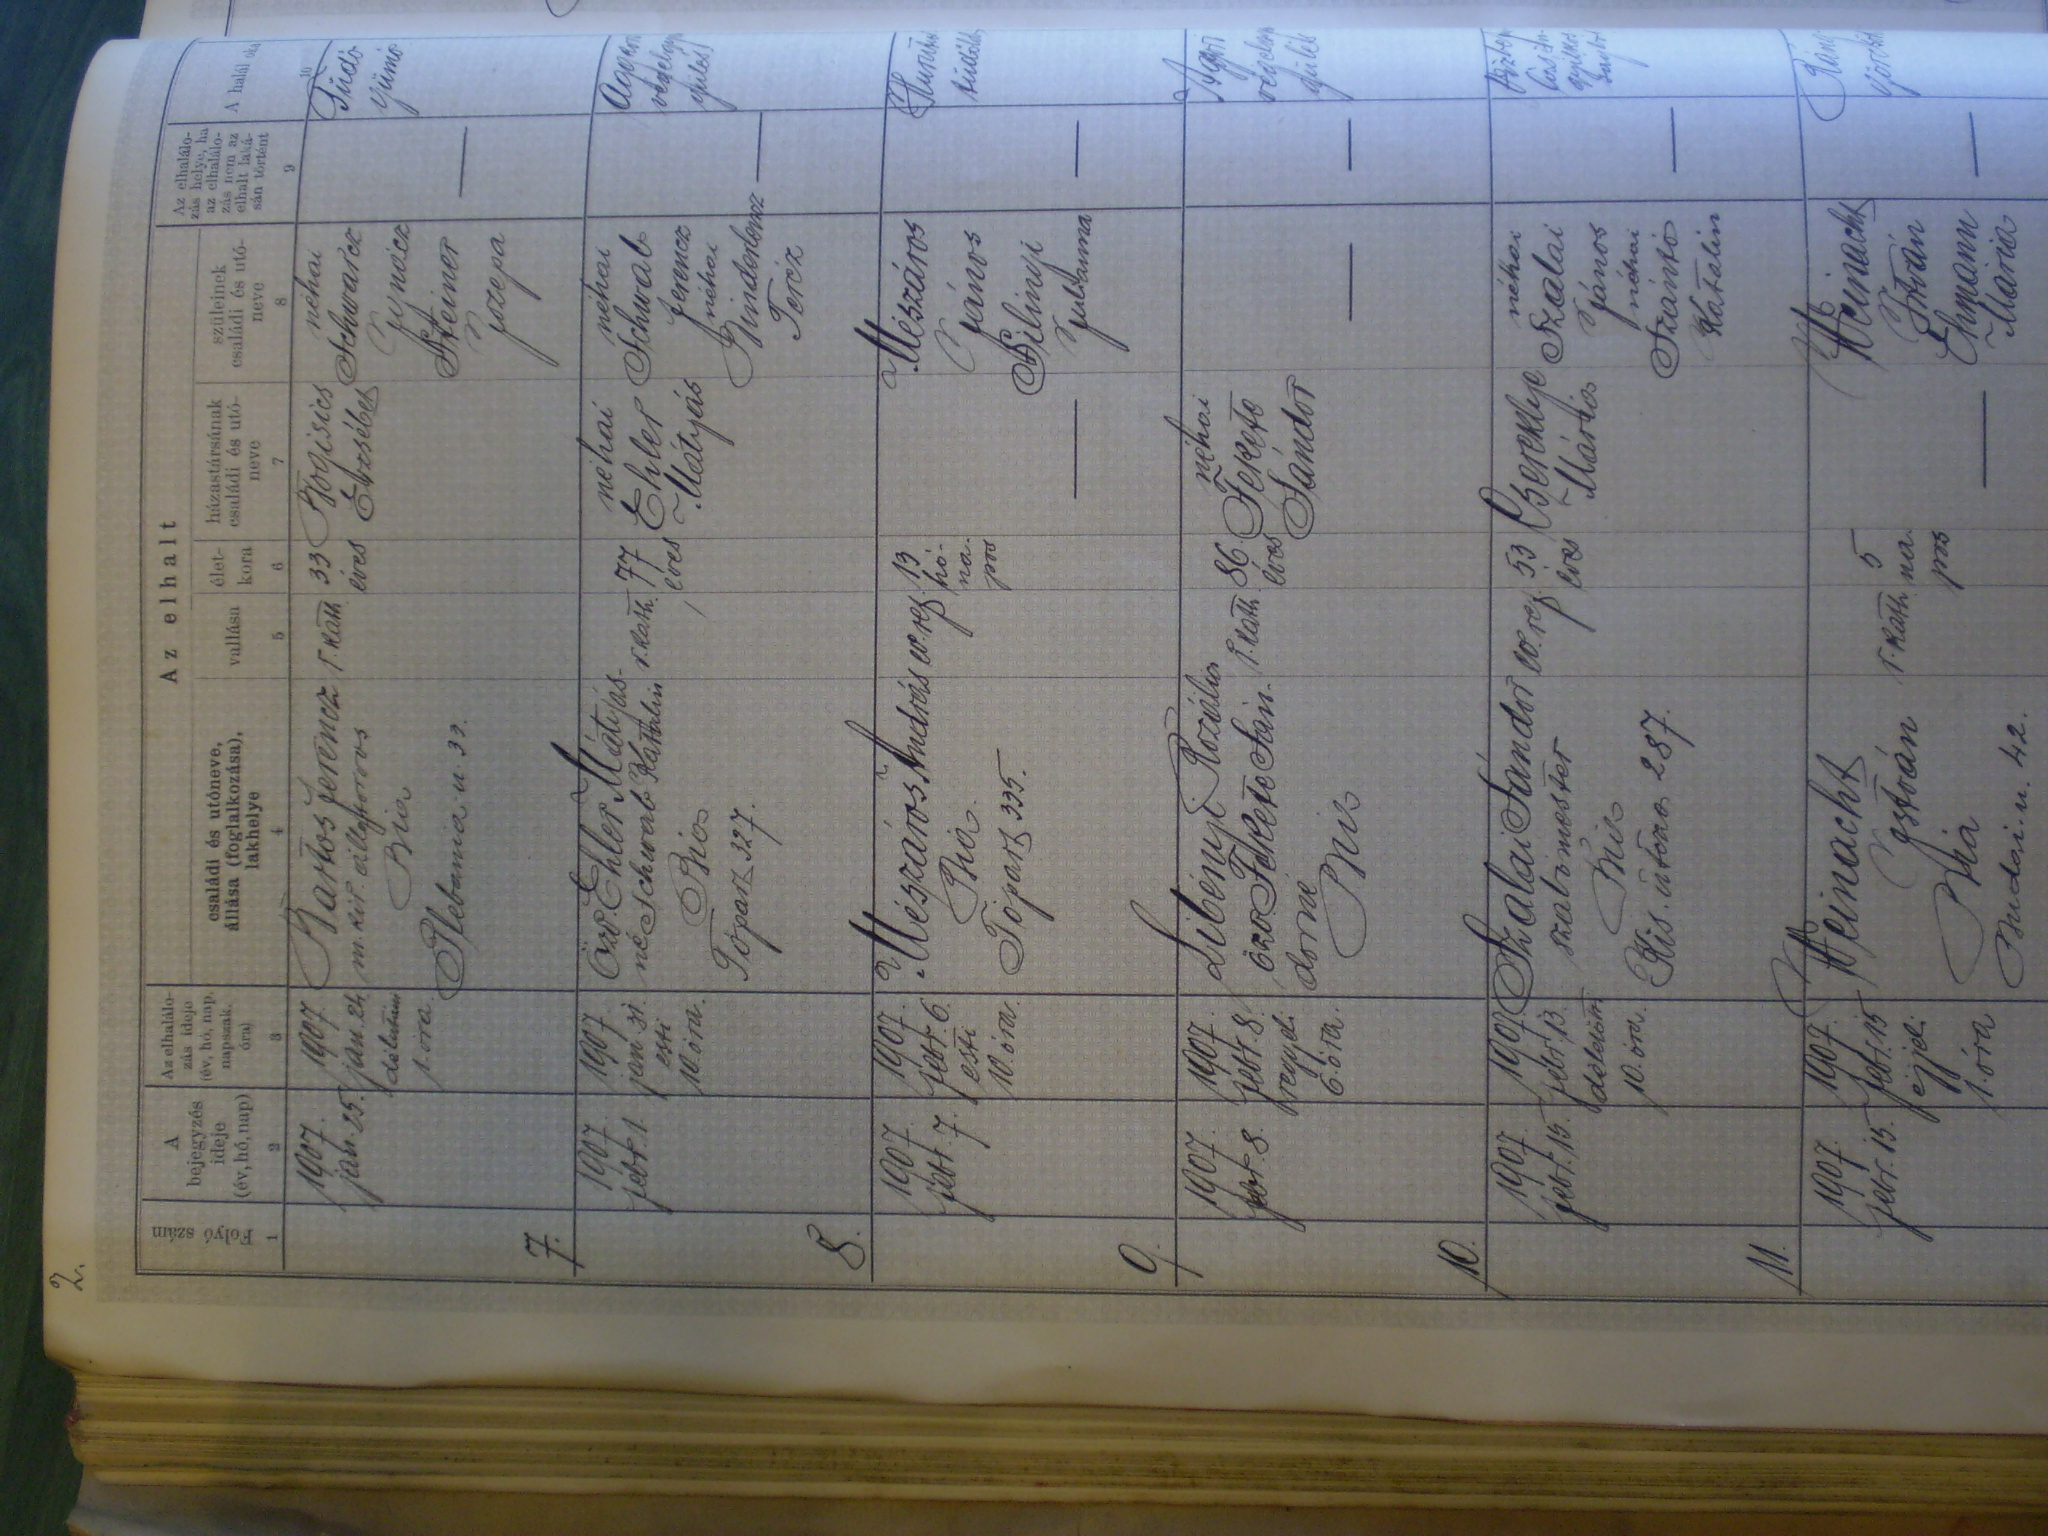 2.
Az elhalt
Folyó szám
A bejegyzés ideje (év, hó, nap)
Az elhalálo-
zás ideje
(év, hó, nap,
napszak,
óra)
családi és utóneve,
állása (foglalkozása),
lakhelye
vallása
élet-
kora
házastársának
családi és utó-
neve
szüleinek
családi és utó-
neve
Az elhalálo-
zás helye, ha
az elhalálo-
zás nem az
elhalt laká-
sán történt
A halál oka
1
2
3
4
5
6
7
8
9
10
7.
1907.
jan. 25.
1907.
jan. 24
délután
1. óra.
Bartos Ferencz
m. kir.
Bia
Plebania u. 33.
r. kath.
33
éves
Bogisics
Erzsébet
néhai
Schwarcz
Ignácz
Steiner
Jozepa
—
Tüdő
gümő
8.
1907.
febr. 1.
1907
jan. 31.
esti
10. óra.
Özv. Ehler Mátyás-
né Schwab Katalin
Bia
Tópart 327.
r. kath.
77
éves
néhai
Ehler
Mátyás
néhai
Schwab
Ferencz
néhai
Teréz
—
9.
1907.
febr. 7.
1907.
febr. 6.
esti
10. óra.
Mészáros András
Bia.
Tópart 335.
ev. ref.
13
hó-
na-
pos
—
Mészáros
János
Bilinyi
Julianna
—
10.
1907.
febr. 8.
1907.
febr. 8.
reggeli
6. óra.
Libényi Rozália
özv. Fekete Sán-
dorné
Bia
r. kath.
86.
éves
néhai
Fekete
Sándor
—
—
Agg
végelgy
gyülés
11.
1907.
febr. 15.
1907
febr. 13.
délelőtt
10. óra.
Szalai Sándor
szabómester
Bia
Kis utcza 287.
ev. ref.
53
éves
Berekhje
Márta
néhai
Szalai
János
néhai
Szántó
Katalin
—
1907.
febr. 15.
1907.
febr. 15
éjjeli
1. óra
Weinacht
István
Bia
Budai u. 42.
r. kath.
5
na.
pos
—
Weinacht
István
Ehmann
Mária
—